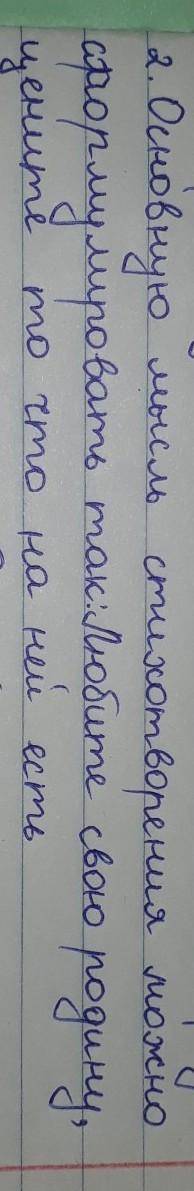 2. Основную мысль стихотворения можно
сформулировать так: Любите свою родину,
цените то что на ней есть